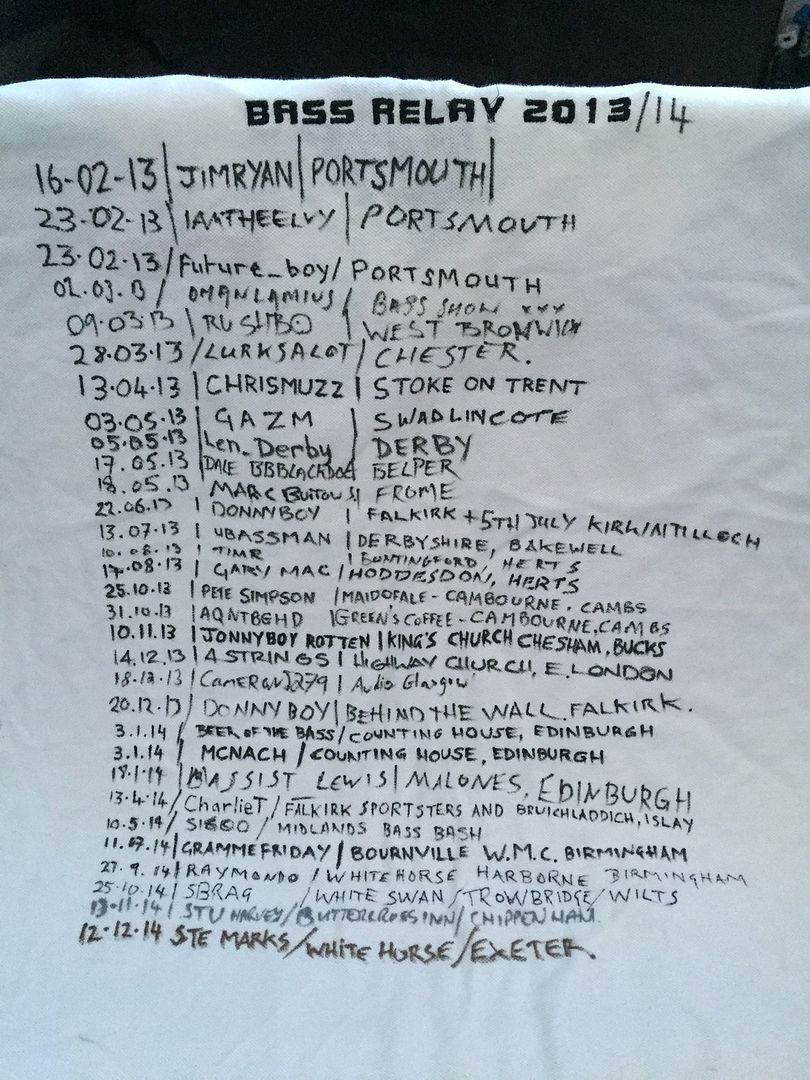 BASS RELAY 2013/14
16-02-13|JIMRYAN|PORTSMOUTH|
23-02-13|IAMTHEELVY|PORTSMOUTH
23.02.13/Future_boy/PORTSMOUTH
02.03.13/ OMANLAMIUS / BASS SHOW xxx
09.03.13 \ RUSHBO | WEST BROMWICH
28.03.13 /LURKSALOT/CHESTER.
13.04.13 |CHRISMUZZ | STOKE ON TRENT
03.05.13 | GAZM | SWADLINCOTE
05.05.13 |Len_Derby / DERBY
17.05.13 |DALE BBBLACKDOG BELPER
18.05.13 MARC | FROME
22.06.13 | DONNYBOY | FALKIRK + 5TH JULY KIRKINTILLOCH
13.07.13 | 4BASSMAN | DERBYSHIRE, BAKEWELL
10.08.13 | TIMR | BUNTINGFORD, HERTS
17.08.13 | GARY MAC /HODDESDON, HERTS
25.10.13 |PETE SIMPSON /MAIDOFALE - CAMBOURNE, CAMBS
31.10.13 |AQNTBGHD |GREEN'S COFFEE - CAMBOURNE, CAMBS
10.11.13 |JONNYBOY ROTTEN |KING'S CHURCH CHESHAM, BUCKS
14.12.13|4 STRINGS | HIGHWAY CHURCH, E. LONDON
18.12.13|Cameron1279 | Audio Glasgow
20.12.13/DONNYBOY|BEHIND THE WALL.FALKIRK.
3.1.14 / BEER OF THE BASS/COUNTING HOUSE, EDINBURGH
3.1.14 | MCNACH /COUNTING HOUSE, EDINBURGH
18.1.14 |BASSIST LEWIS|MALONES, EDINBURGH
13.4.14/CharlieT/FALKIRK SPORTSTERS AND BRUICHLADDICH, ISLAY
10.5.14/ SI600 / MIDLANDS BASS BASH
11.07.14|GRAMMEFRIDAY/BOURNVILLE W.M.C. BIRMINGHAM
27.9.14|RAYMONDO /WHITEHORSE HARBORNE BIRMINGHAM
25.10.14| SBRAG /WHITE SWAN/TROWBRIDGE/WILTS
13.11.14| STU HARVEY/BUTTERCROSS INN/CHIPPENHAM.
12.12.14 STE MARKS/WHITE HORSE/EXETER.